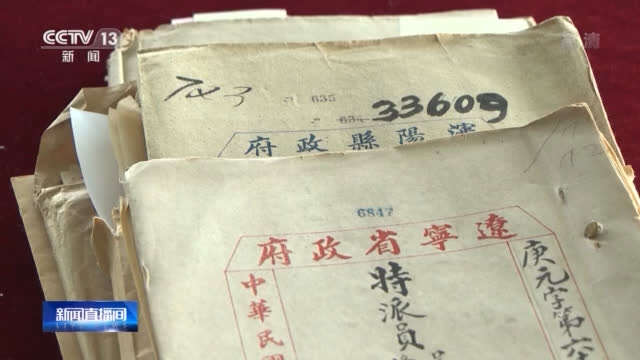 CCTV 13
新闻
高清
743
635
634
33609
府政縣陽瀋
6847
府政省寧遼
庚元字第六
特派員
中華民國
新闻直播间